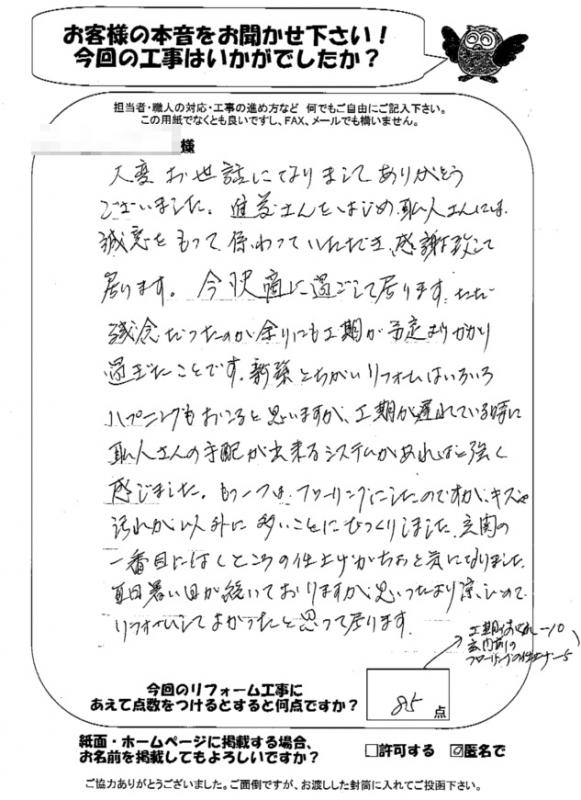 お客様の本音をお聞かせ下さい！
今回の工事はいかがでしたか？
担当者・職人の対応・工事の進め方など　何でもご自由にご記入下さい。
この用紙でなくとも良いですし、FAX、メールでも構いません。
様
大変お世話になりましてありがとう
ございました。さんをはじめ職人さんには、
誠意をもって係わっていただき、感謝致して
居ります。今快適に過ごして居ります。ただ
残念だったのが余りにも工期が予定よりかかり
過ぎたことです。新築とちがいリフォームはいろいろ
ハプニングもおこると思いますが、工期が遅れている時に
職人さんの手配が出来るシステムがあればと強く
感じました。もう一つは、フローリングにしたのですが、キズや
汚れが以外に多いことにびっくりしました。玄関の
一番目にはしところの仕上げがちょっと気になりました。
毎日暑い日が続いておりますが、思ったより涼しいので、
リフォームしてよかったと思って居ります。
工期おくれ－10
玄関前の
フローリングの仕上げ－5
今回のリフォーム工事に
あえて点数をつけるとすると何点ですか？
85点
紙面・ホームページに掲載する場合、
お名前を掲載してもよろしいですか？
□許可する　☑匿名で
ご協力ありがとうございました。ご面倒ですが、お渡しした封筒に入れてご投函下さい。